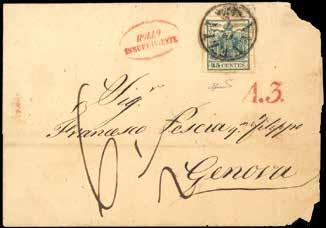 BOLLO
INSUFFICIENTE
45 CENTES
A.3.
Sigr
Francesco Pescia qm Filippo
Genova
6